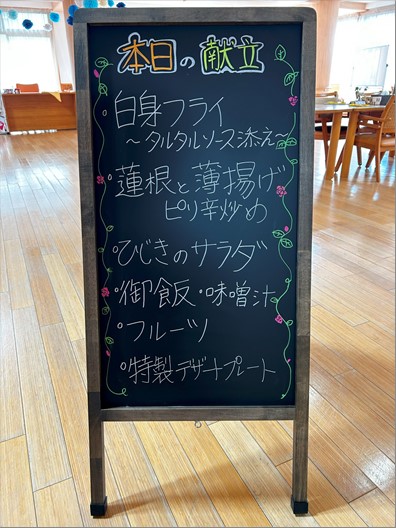 本日の献立
・白身フライ
～タルタルソース添え～
・蓮根と薄揚げ
ピリ辛炒め
・ひじきのサラダ
・御飯・味噌汁
・フルーツ
・特製デザートプレート